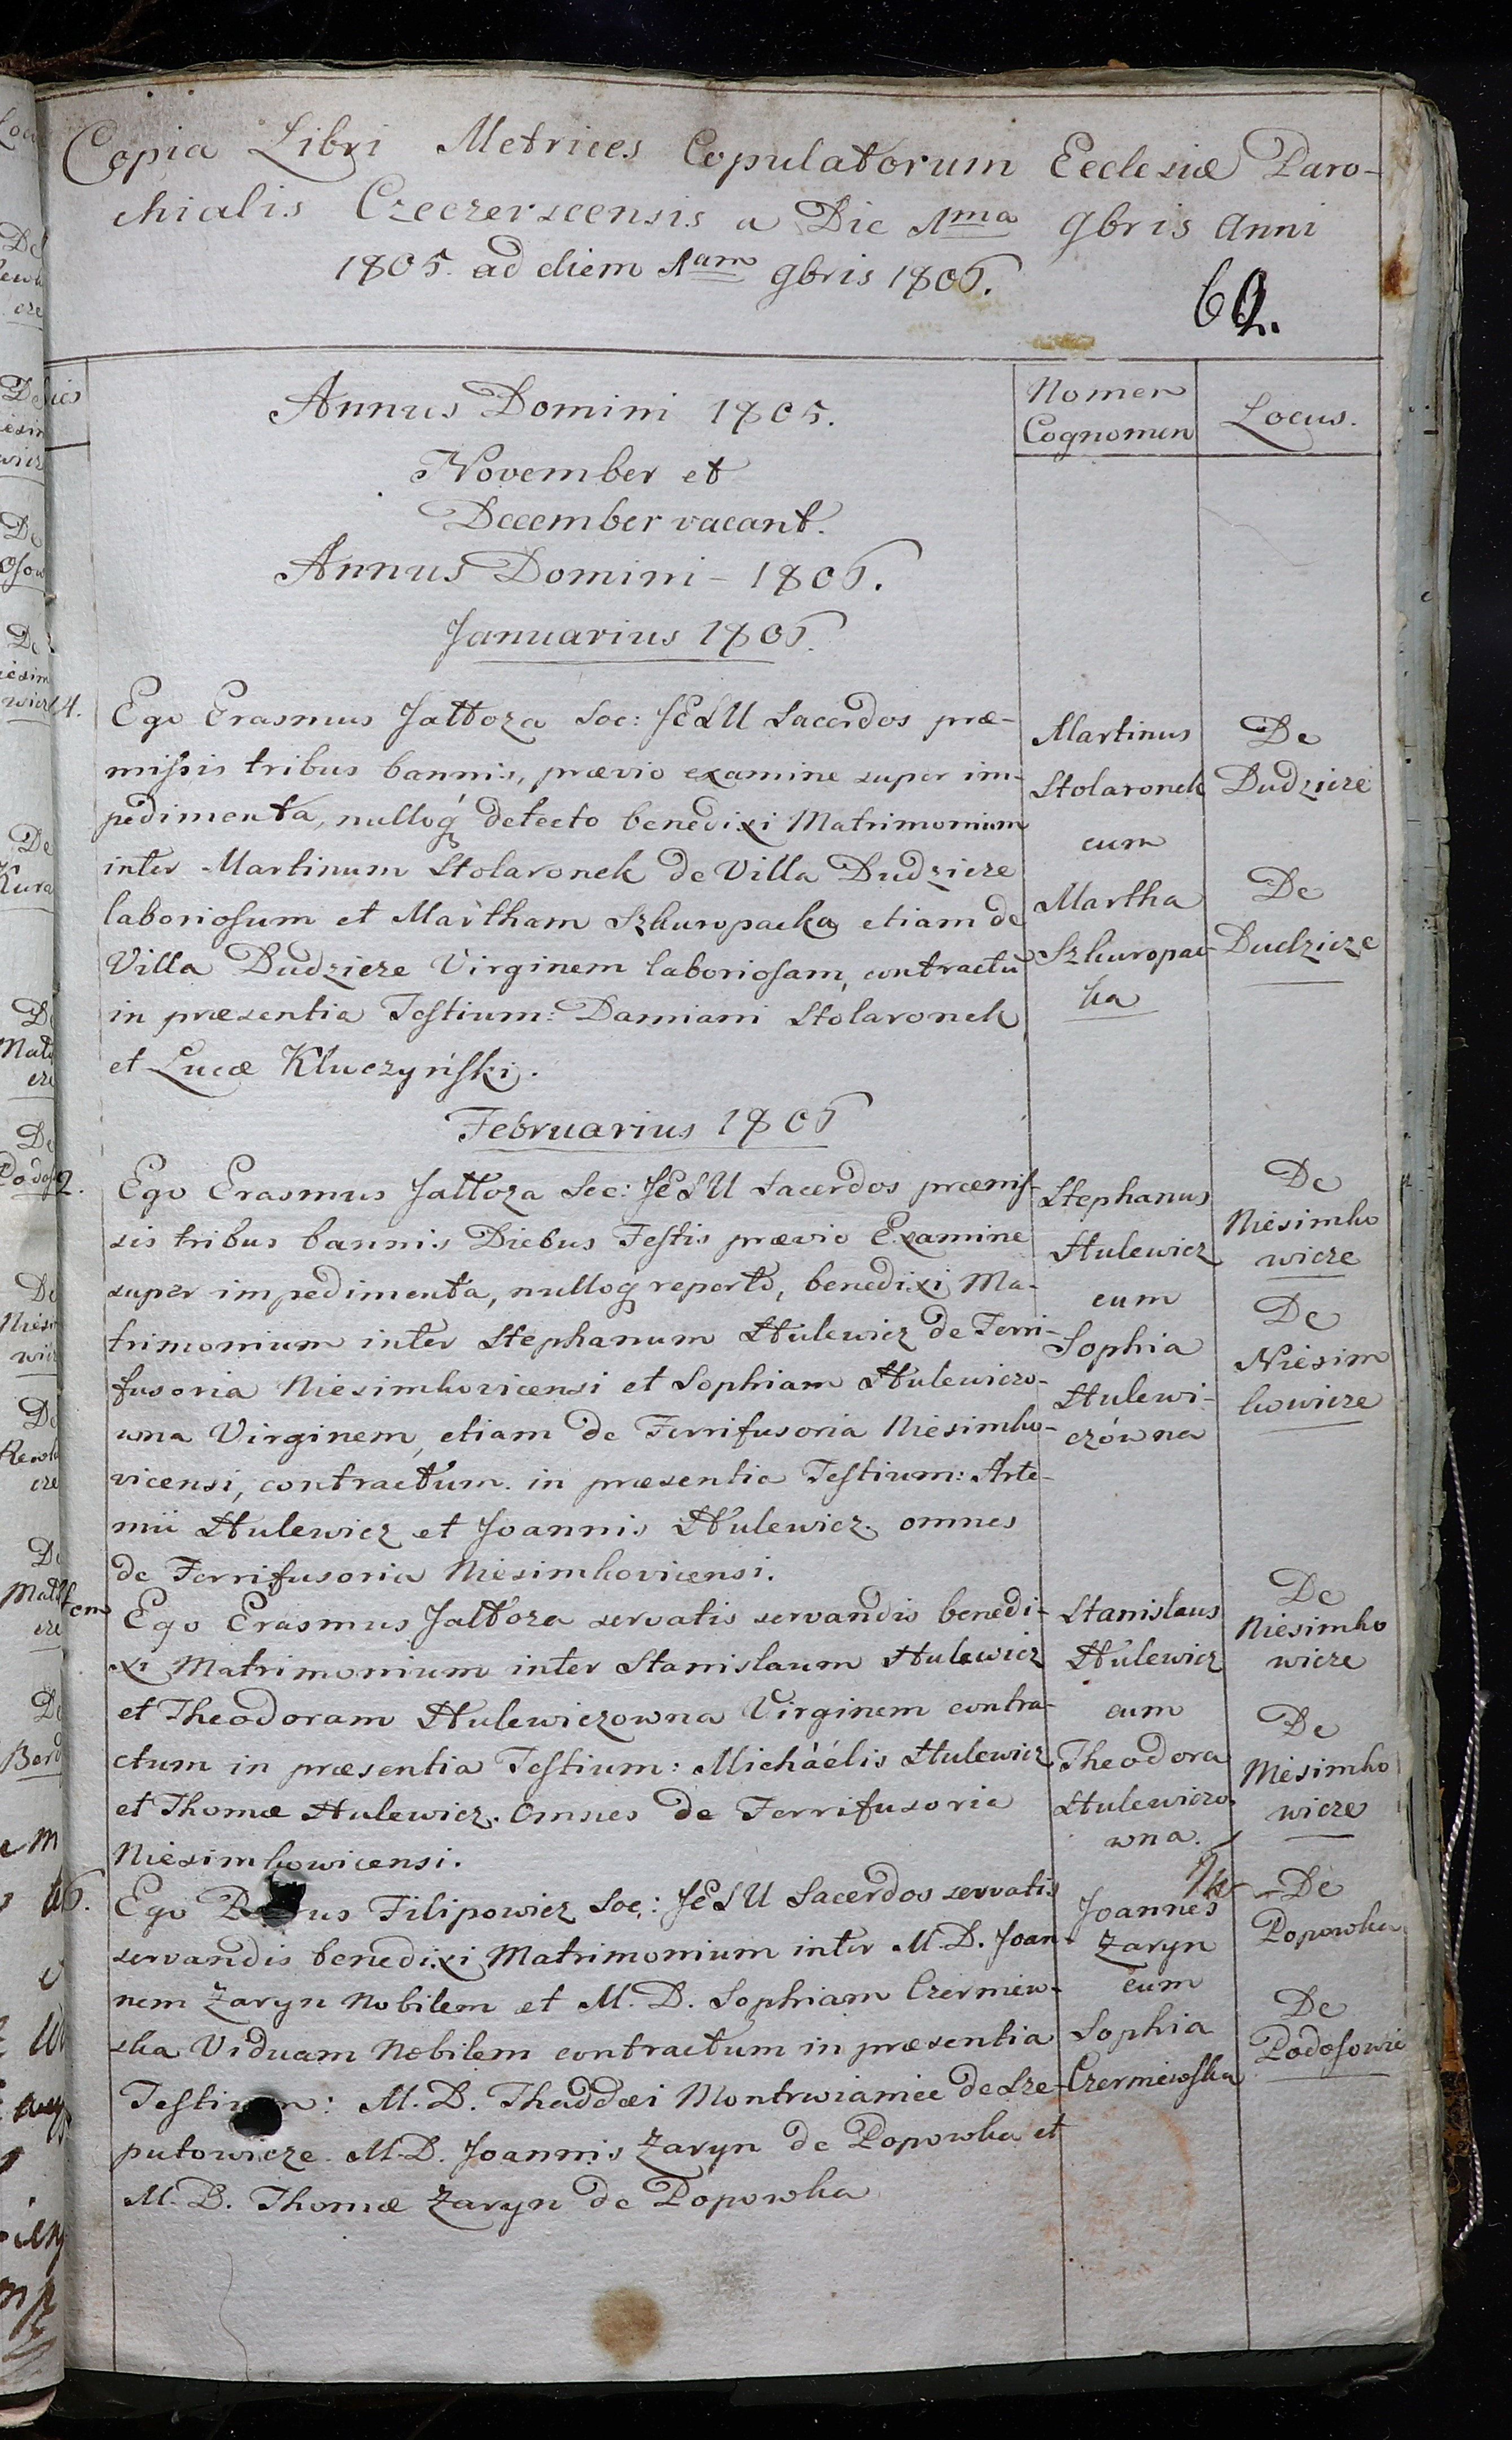 Copia Libri Metrices Copulatorum Ecclesiæ Paro-
chialis Czeczerscensis a Die 1ma 9bris Anni
1805. ad diem 1am 9bris 1806.
62.
Dies
Annus Domini 1805.
Nomen
Cognomen
Locus.
November et
December vacant.
Annus Domini - 1806.
Januarius 1806.
14.
Ego Erasmus Jałtoza Soc: JESU Sacerdos præ-
missis tribus bannis, prævio examine super im-
pedimenta, nulloq detecto benedixi Matrimonium
inter Martinum Stolaronek de Villa Dudzicze
laboriosum et Martham Szkuropacka etiam de
Villa Dudzicze Virginem laboriosam, contractu
in præsentia Testium: Damiani Stolaronek
et Lucæ Kluczyński.
Martinus
Stolaronek
cum
Martha
Szkuropac-
ka
De
Dudzicze
De
Dudzicze
Februarius 1806
2.
Ego Erasmus Jałtoza Soc: JESU Sacerdos præmis-
sis tribus bannis Diebus Festis prævio Examine
super impedimenta, nulloq reperto, benedixi Ma-
trimonium inter Stephanum Hulewicz de Ferri-
fusoria Niesimkovicensi et Sophiam Hulewiczo-
wna Virginem, etiam de Ferrifusoria Niesimko-
vicensi, contractum in præsentia Testium: Arte-
mii Hulewicz et Joannis Hulewicz. omnes
de Ferrifusoria Niesimkovicensi.
Stephanus
Hulewicz
cum
Sophia
Hulewi-
czówna
De
Niesimko
wicze
De
Niesim
kowicze
Item
Ego Erasmus Jałtoza servatis servandis benedi-
xi Matrimonium inter Stanislaum Hulewicz
et Theodoram Hulewiczowna Virginem contra-
ctum in præsentia Testium: Micháélis Hulewicz
et Thomæ Hulewicz. Omnes de Ferrifusoria
Niesimkowicensi.
Stanislaus
Hulewicz
cum
Theodora
Hulewiczo
wna.
De
Niesimko
wicze
De
Niesimko
wicze
Ego us Filipowicz Soc: JESU Sacerdos servatis
servandis benedixi Matrimonium inter M.D. Joan-
nem Zaryn Nobilem et M. D. Sophiam Czerniew-
ska Viduam Nobilem contractum in præsentia
Testium: M. D. Thaddæi de Sze-
putowicze. M.D. Joannis Zaryn de Popowka et
M. D. Thomæ Zaryn de Popowka
Joannes
Zaryn
cum
Sophia
Czerniewska
De
Popowka
De
Podosowie